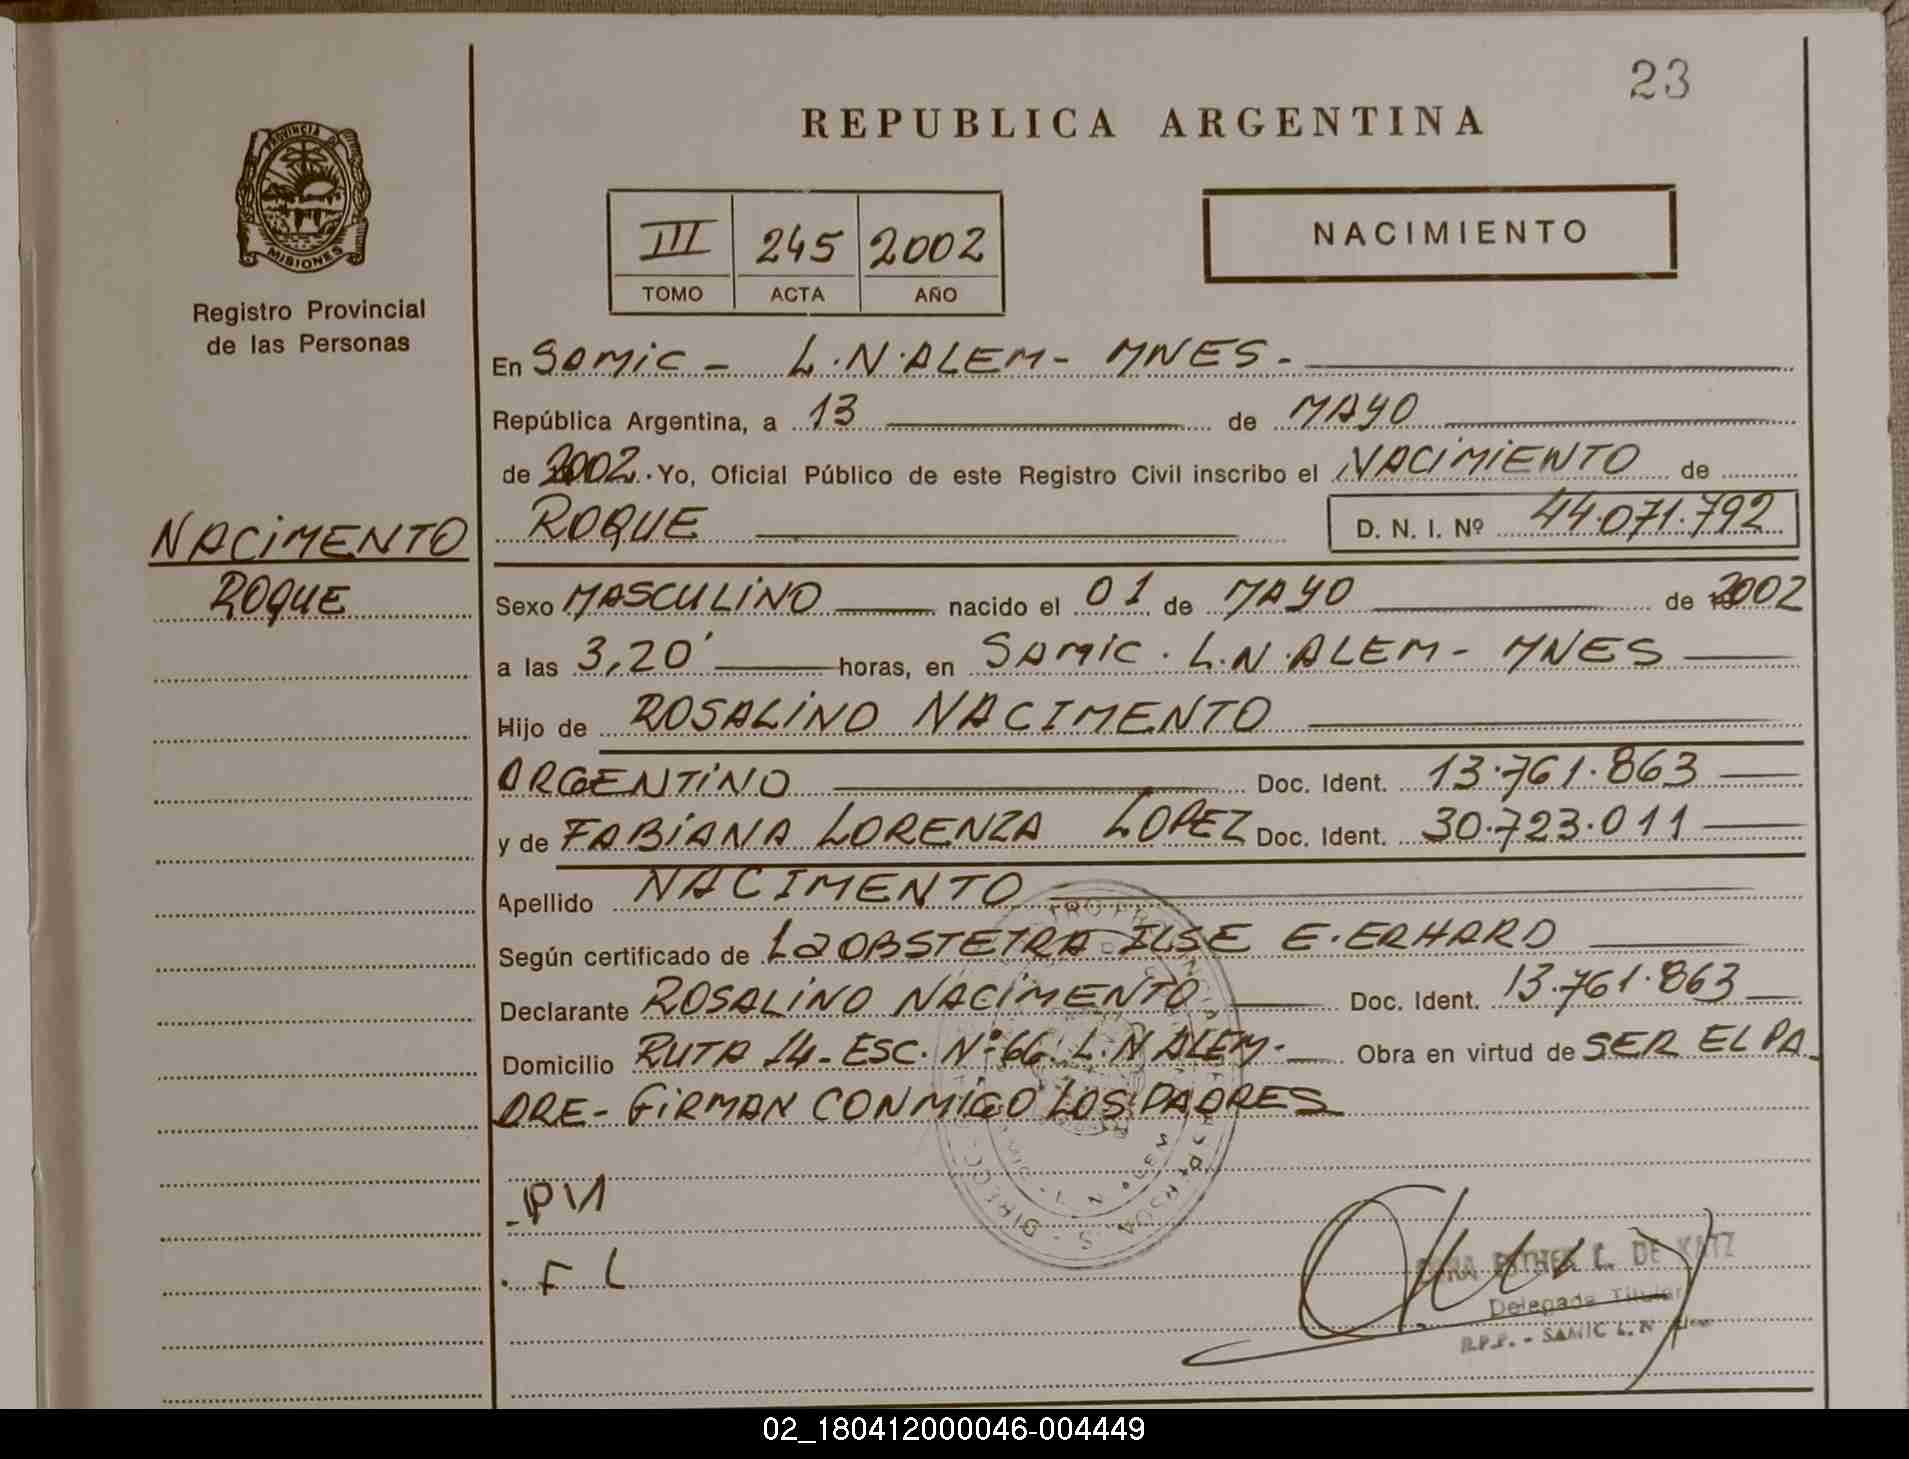 23
REPUBLICA ARGENTINA
PROVINCIA
MISIONES
Registro Provincial
de las Personas
III 245 2002
TOMO ACTA AÑO
NACIMIENTO
En SAMIC - L.N.ALEM - MNES -
República Argentina, a 13 de MAYO
de 2002. Yo, Oficial Público de este Registro Civil inscribo el NACIMIENTO de
NACIMENTO
ROQUE
ROQUE D. N. I. Nº 44.071.792
Sexo MASCULINO nacido el 01 de MAYO de 2002
a las 3,20' horas, en SAMIC. L.N.ALEM - MNES
Hijo de ROSALINO NACIMENTO
ARGENTINO Doc. Ident. 13.761.863
y de FABIANA LORENZA LOPEZ Doc. Ident. 30.723.011
Apellido NACIMENTO
Según certificado de La OBSTETRA ILSE E. ERHARD
Declarante ROSALINO NACIMENTO Doc. Ident. 13.761.863
Domicilio RUTA 14 - ESC. Nº 66. L.N ALEM - Obra en virtud de SER EL PA
DRE - FIRMAN CONMIGO LOS PADRES
F L
ESTHER L. DE KATZ
Delegada Titular
R.P.P. - SAMIC L. N. Alem
02_180412000046-004449